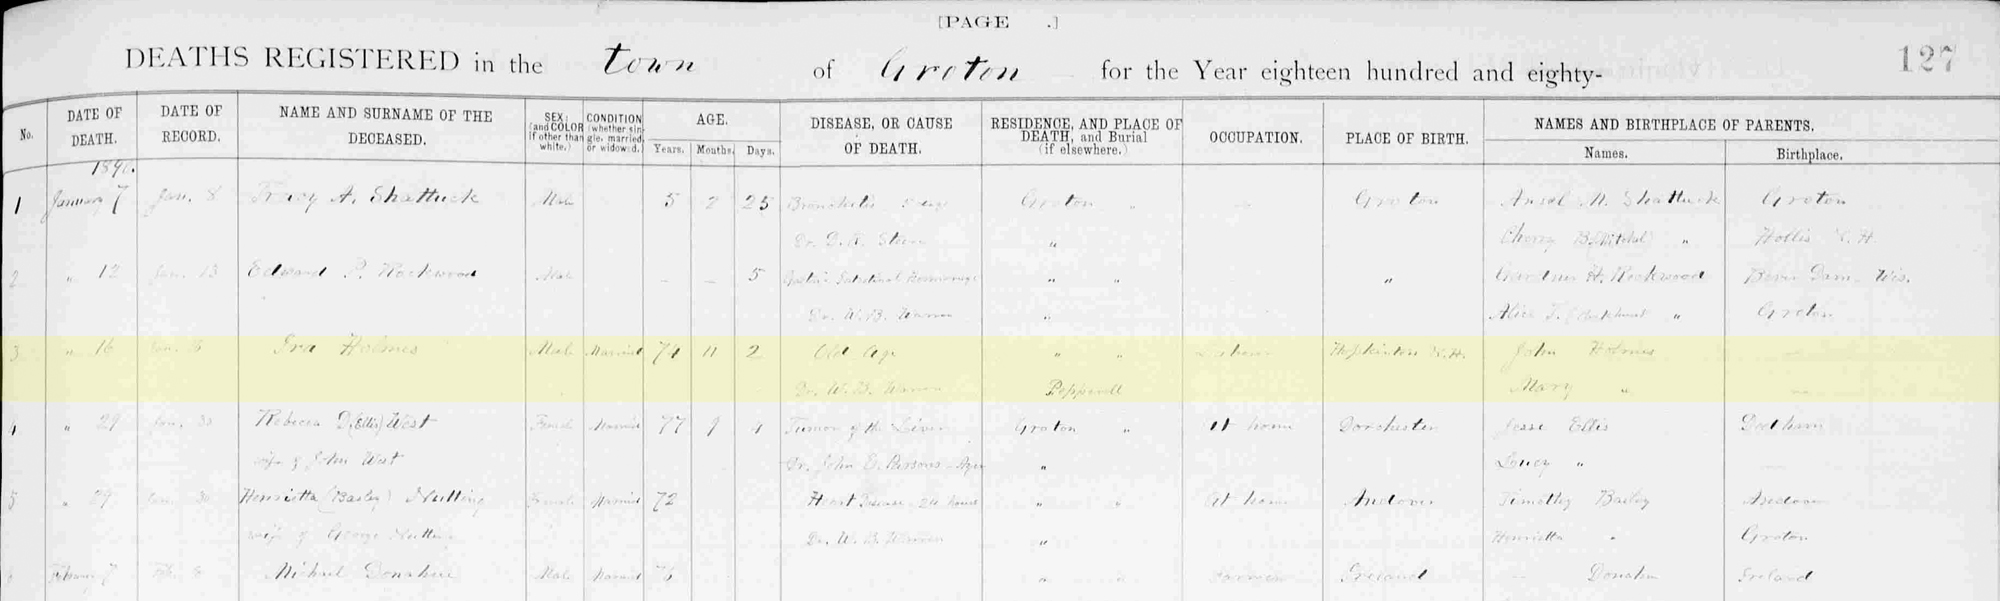 [PAGE .]
DEATHS REGISTERED in the town of Groton for the Year eighteen hundred and eighty-
127
No.
DATE OF DEATH.
DATE OF RECORD.
NAME AND SURNAME OF THE DECEASED.
SEX; (and COLOR if other than white.)
CONDITION (whether sin gle, married, or widowed.
AGE.
Years. Months. Days.
DISEASE, OR CAUSE OF DEATH.
RESIDENCE, AND PLACE OF DEATH, and Burial (if elsewhere.)
OCCUPATION.
PLACE OF BIRTH.
NAMES AND BIRTHPLACE OF PARENTS.
Names. Birthplace.
1890.
1 January 7 Jan. 8 Tracy A. Shattuck Male 5 2 25 Bronchitis Groton " Groton Ansel M. Shattuck Groton
Dr. " Cherry B. " Hollis N.H.
2 " 12 Jan. 13 Edward P. Rockwood Male - - 5 " " " H. Rockwood Dam Wis.
Dr. W. B. Warren " Alice " Groton
3 " 16 Jan. 16 Ira Holmes Male Married 74 11 2 Old Age " " Hopkinton N.H. John Holmes -
Dr. W. B. Warren Pepperell Mary " -
4 " 29 Jan. 30 Rebecca D (Ellis) West Female Married 77 9 4 Tumor of the Liver Groton " At home Dorchester Jesse Ellis Dedham
wife of John West Dr. John E. Parsons - Ayer " Lucy " -
5 " 29 Jan. 30 Henrietta (Bailey) Nutting Female Married 72 Heart Disease 24 hours " " At home Andover Timothy Bailey Andover
wife of George Nutting Dr. W. B. Warren " Henrietta " Groton
6 February 7 Feb. 8 Michael Donahue Male Married 76 " " Farmer Ireland - Donahue Ireland